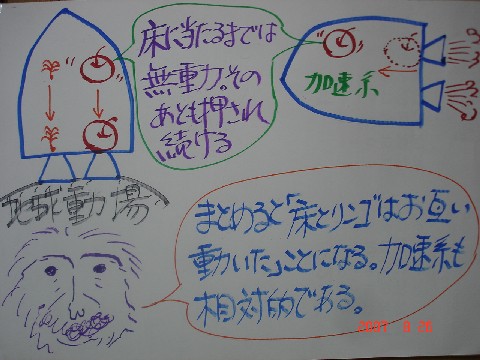 床に当たるまでは
無重力。その
あとも押され
続ける
加速系
地球重力場
まとめると「床とリンゴはお互い
動いた」ことになる。加速系も
相対的である。